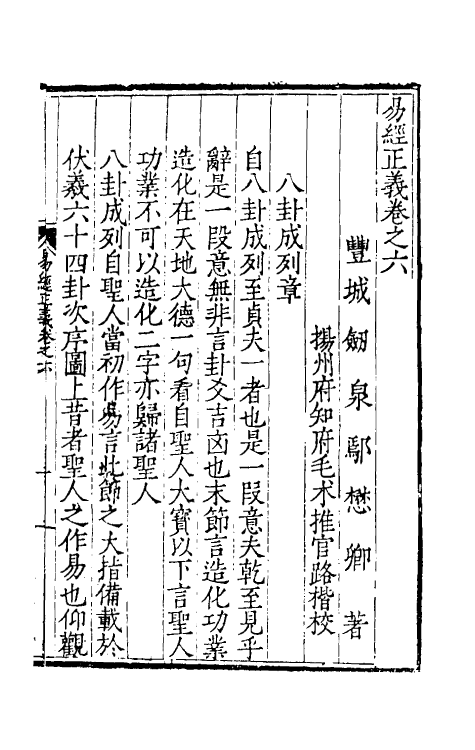 易經正義卷之六
豐城劒泉鄢懋卿著
揚州府知府毛木推官路楷校
八卦成列章
自八卦成列至貞夫一者也是一段意夫乾至見乎
辭是一段意無非言卦爻吉凶也末節言造化功業
造化在天地大德一句看自聖人大寶以下言聖人
功業不可以造化二字亦歸諸聖人
八卦成列自聖人當初作易言此節之大指備載於
伏羲六十四卦次序圖上昔者聖人之作易也仰觀
易經正義卷之六